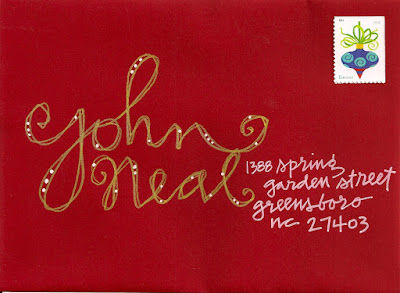 john
neal
1388 spring
garden street
greensboro
nc 27403